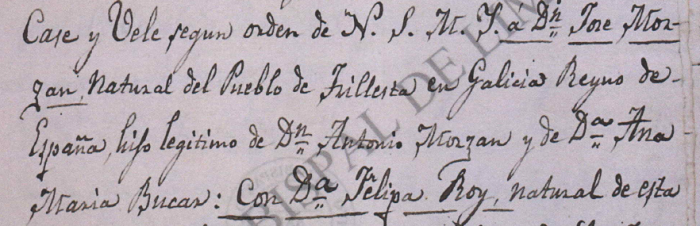 Case y Vele segun orden de N. S. M. Y. a Dn Jose Mor-
zan, Natural del Pueblo de Frillesta en Galicia Reyno de
España, hijo legitimo de Dn Antonio Morzan y de Da Ana
Maria Bucar: Con Da Felipa Roy, natural de esta
BISPAL DE